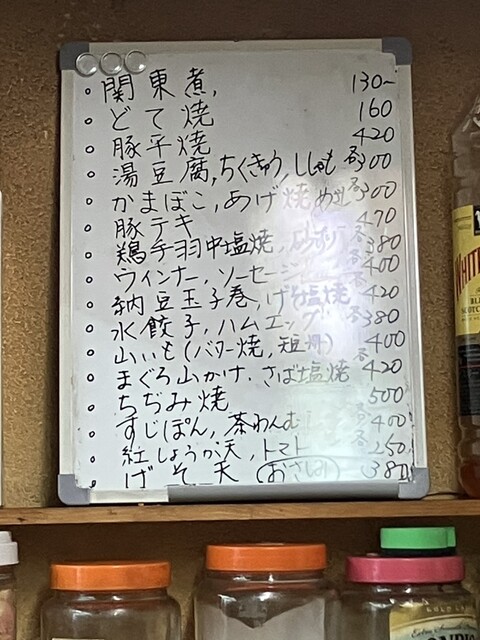 関東煮, 130~
どて焼 160
豚平焼 420
湯豆腐, ちくきゅう, ししゃも 各300
かまぼこ, あげ焼 各300
豚テキ 470
鶏手羽中塩焼, 各380
ウィンナー, ソーセージ 各400
納豆玉子巻, げそ塩焼 各420
水餃子, ハムエッグ 各380
山いも(バター焼, 短冊) 各400
まぐろ山かけ, さば塩焼 各420
ちぢみ焼 500
すじぽん, 茶わんむし 各400
紅しょうが天, トマト 各250
げそ天 (おさしみ) 380